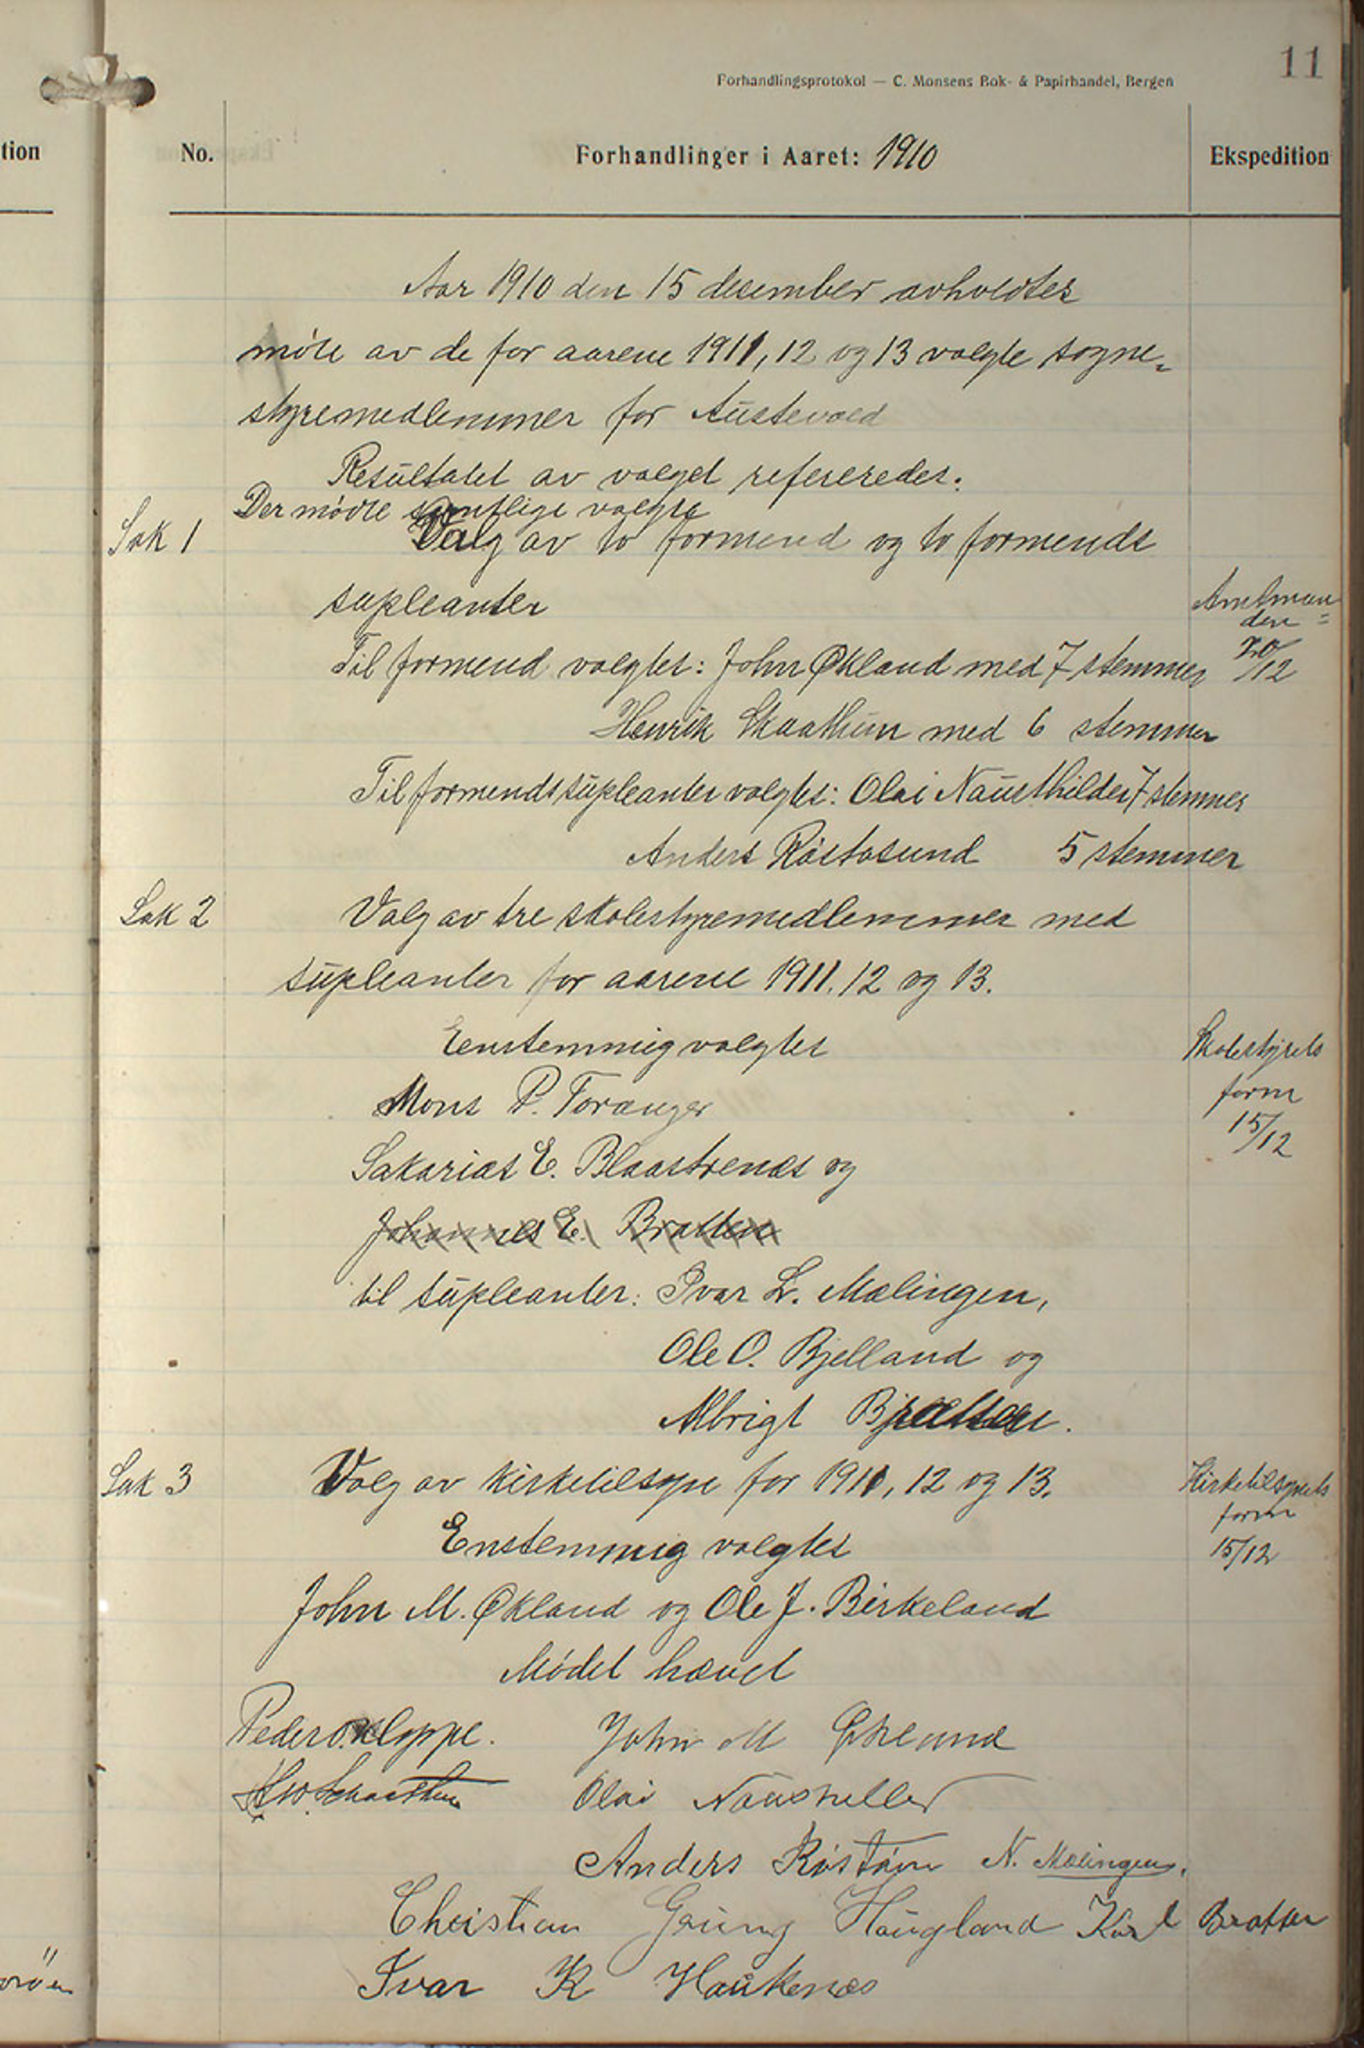 11
Forhandlingsprotokol — C. Monsens Bok- & Papirhandel, Bergen
tion
No.
Forhandlinger i Aaret: 1910
Ekspedition
Aar 1910 den 15 december avholdtes
møte av de for aarene 1911, 12 og 13 valgte sogne-
styremedlemmer for Austevold
Resultatet av valget refereredes.
Der mødte samtlige valgte
Sak 1
Valg av to formænd og to formænds
supleanter
Amtman
den
20/12
Til formænd valgtes: John Økland med 7 stemmer
Henrik Skaathun med 6 stemmer
Til formændssupleanter valgtes: Olai Nausthilder 7 stemmer
Anders Røstøsund 5 stemmer
Sak 2
Valg av tre skolestyremedlemmer med
supleanter for aarene 1911. 12 og 13.
Eenstemmig valgtes
Skolestyrets
form
15/12
Mons P. Toranger
Sakarias E. Blaastrenæs og
Johannes E. Bratten
til supleanter: Ivar L. Mælingen,
Ole O. Bjelland og
Albrigt
Sak 3
Valg av kirketilsyn for 1911, 12 og 13.
Kirketilsynets
form
15/12
Enstemmig valgtes
John M. Økland og Ole J. Birkeland
Mødet hævet
Peder O. Kloppe.
John M Økland
H W Skaathun
Olai Naushiller
Anders Røstøen N. Mælingen.
Christian Grung Haugland Karl Bratten
Ivar K Haukenæs